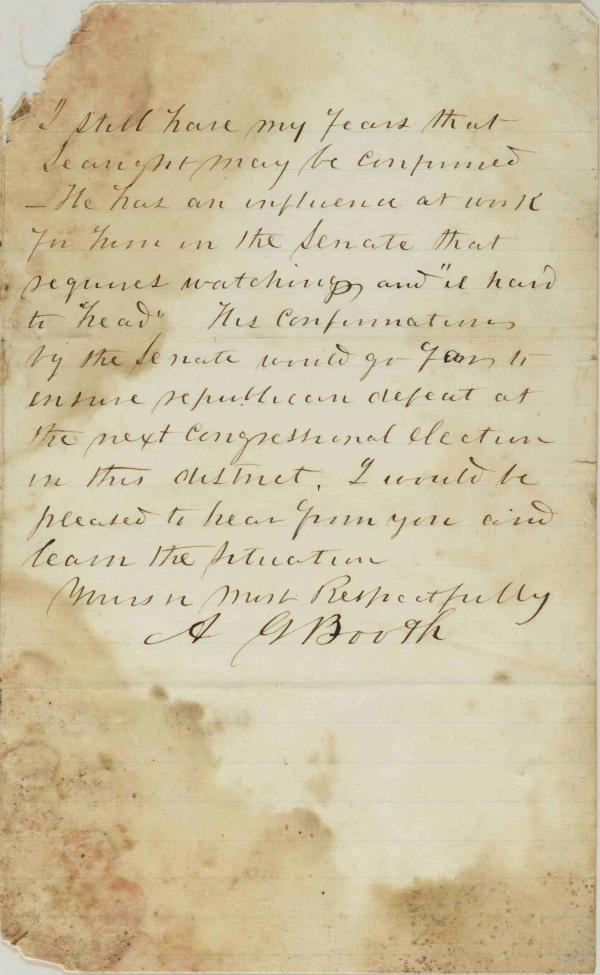 I still have my fears that
Searight may be confirmed
– He has an influence at work
for him in the Senate that
requires watching and "is hard
to head" His confirmation
by the Senate would go far to
ensure republican defeat at
the next Congressional Election
in this district. I would be
pleased to hear from you and
learn the situation
Yours Most Respectfully
A G Booth